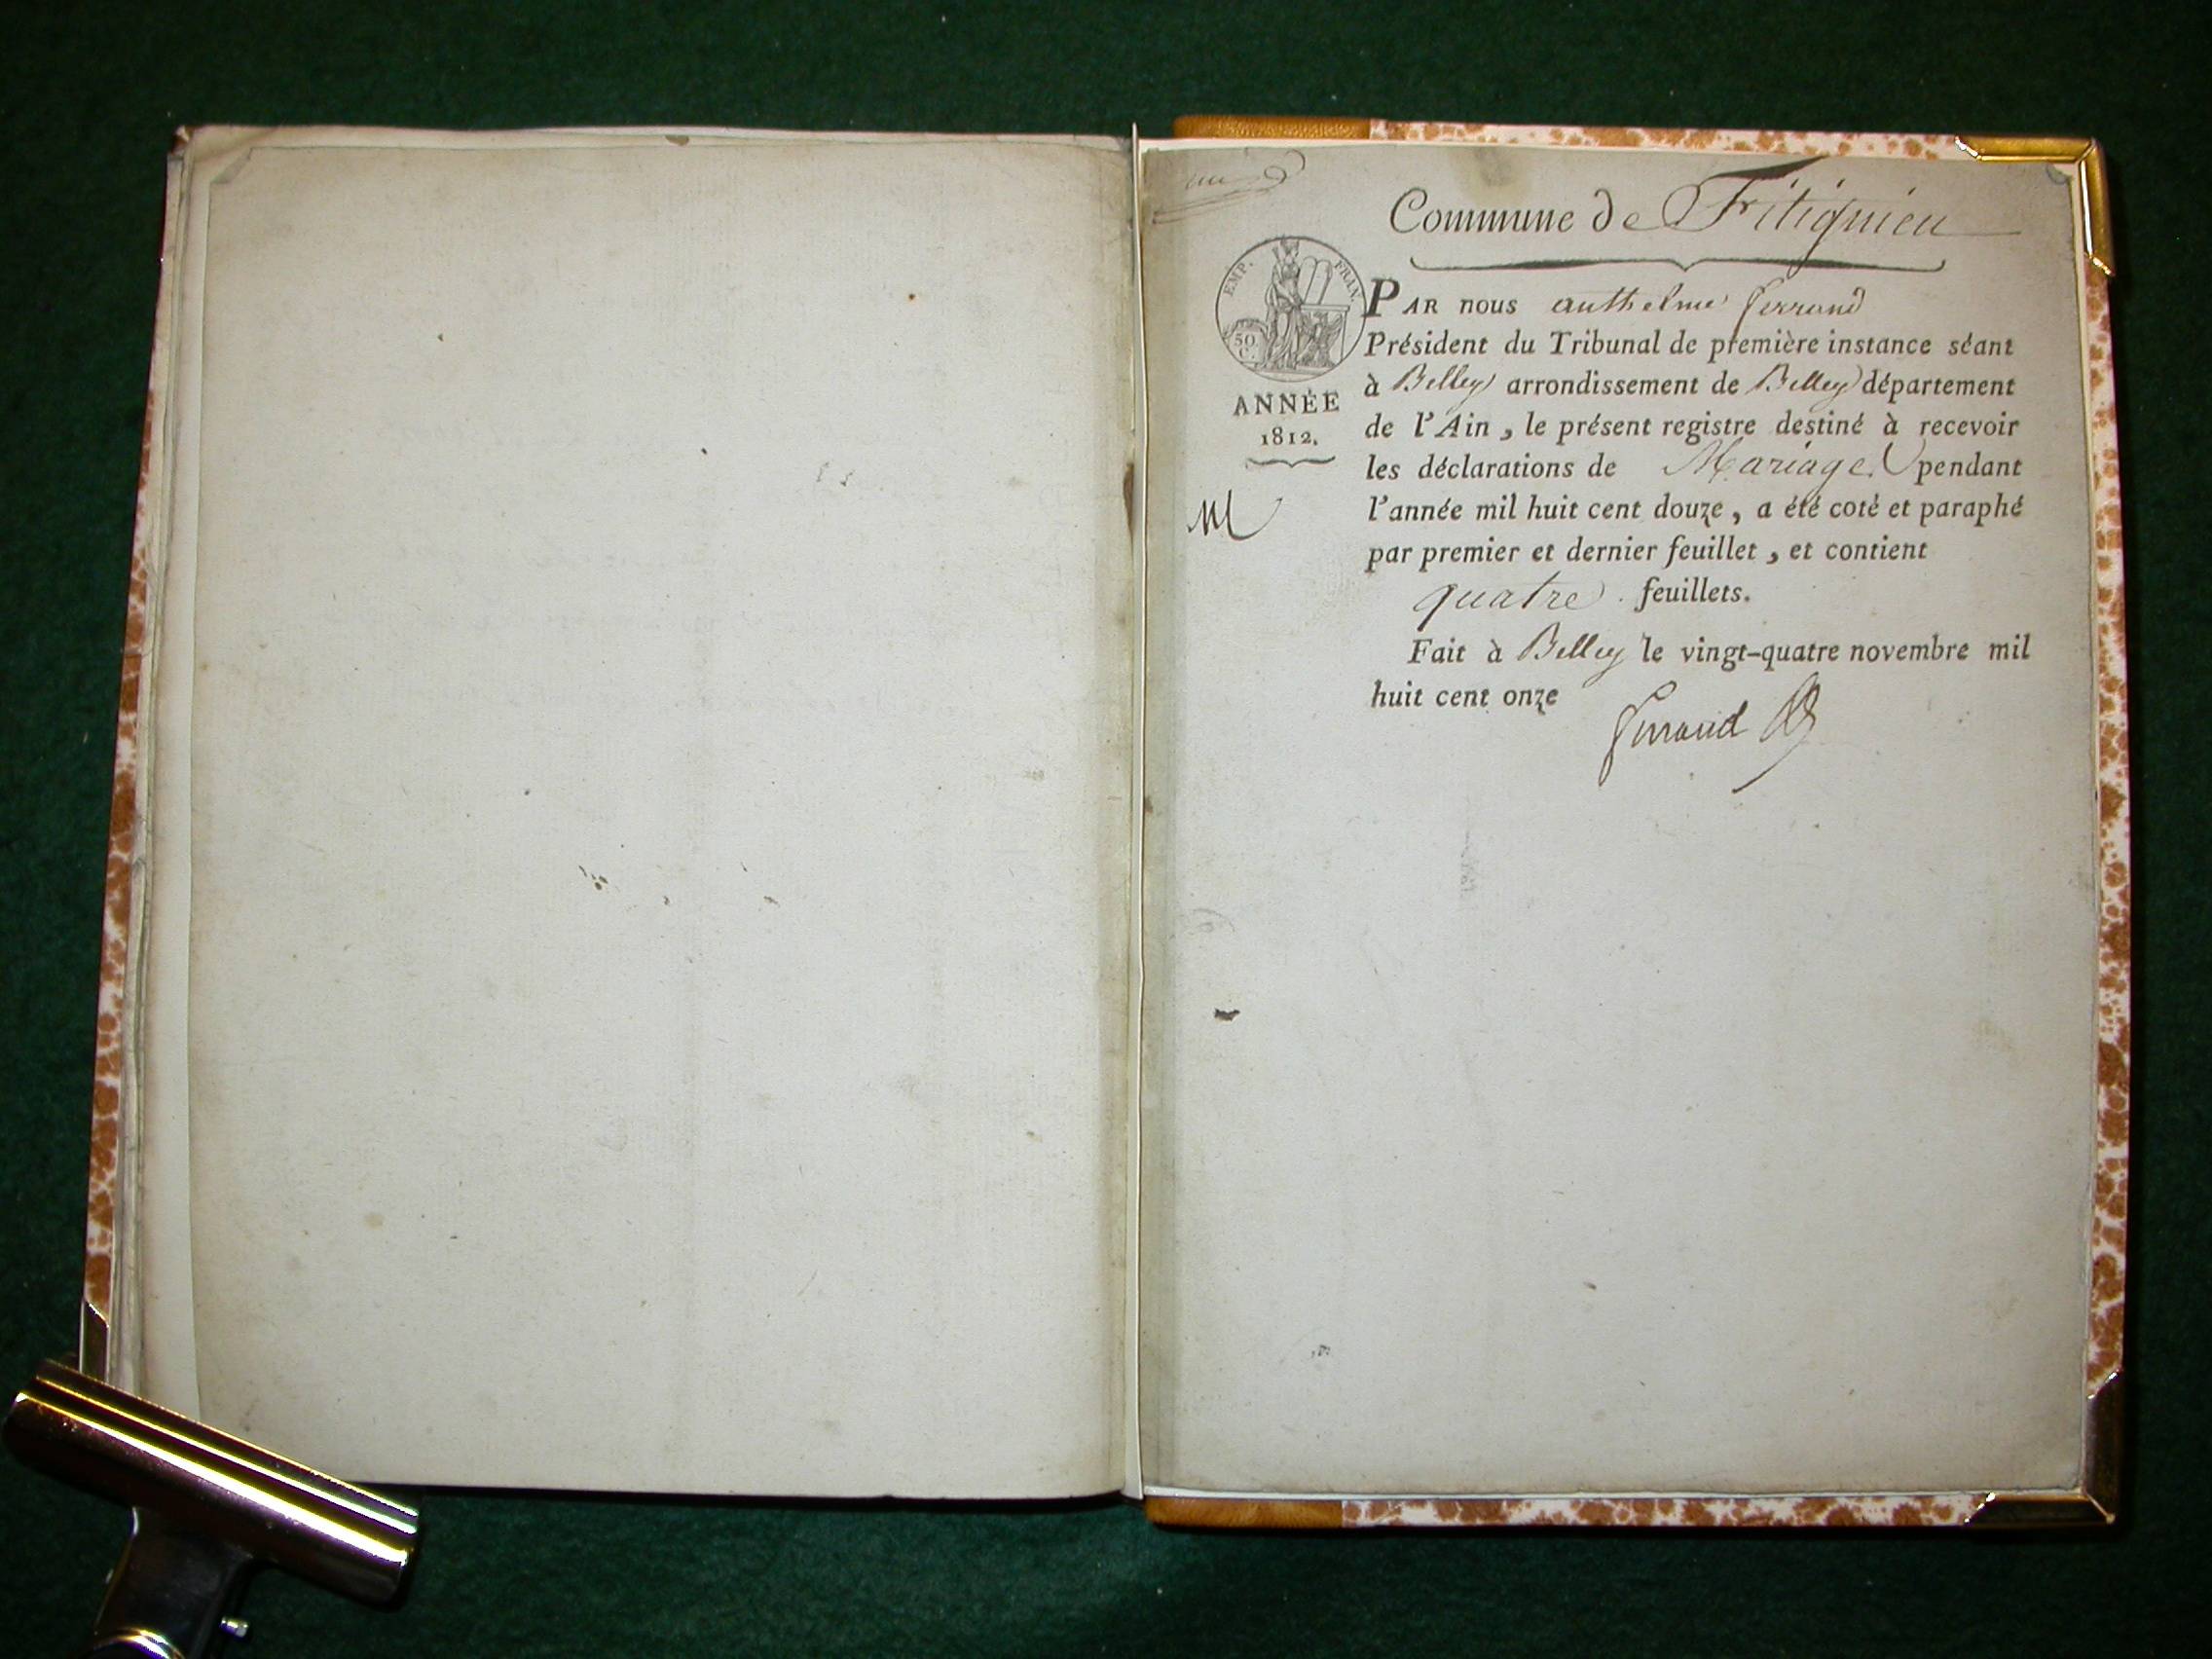 Commune de Fitignieu
EMP. FRAN.
50 C.
ANNÉE
1812.
M
PAR nous anthelme ferrand
Président du Tribunal de première instance séant
à Belley arrondissement de Belley département
de l'Ain, le présent registre destiné à recevoir
les déclarations de Mariage pendant
l'année mil huit cent douze, a été coté et paraphé
par premier et dernier feuillet, et contient
quatre feuillets.
Fait à Belley le vingt-quatre novembre mil
huit cent onze
ferrand